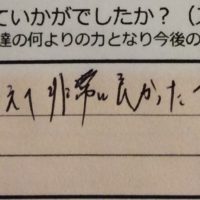 ていかがでしたか？（
達の何よりの力となり今後の
えて非常に良かった